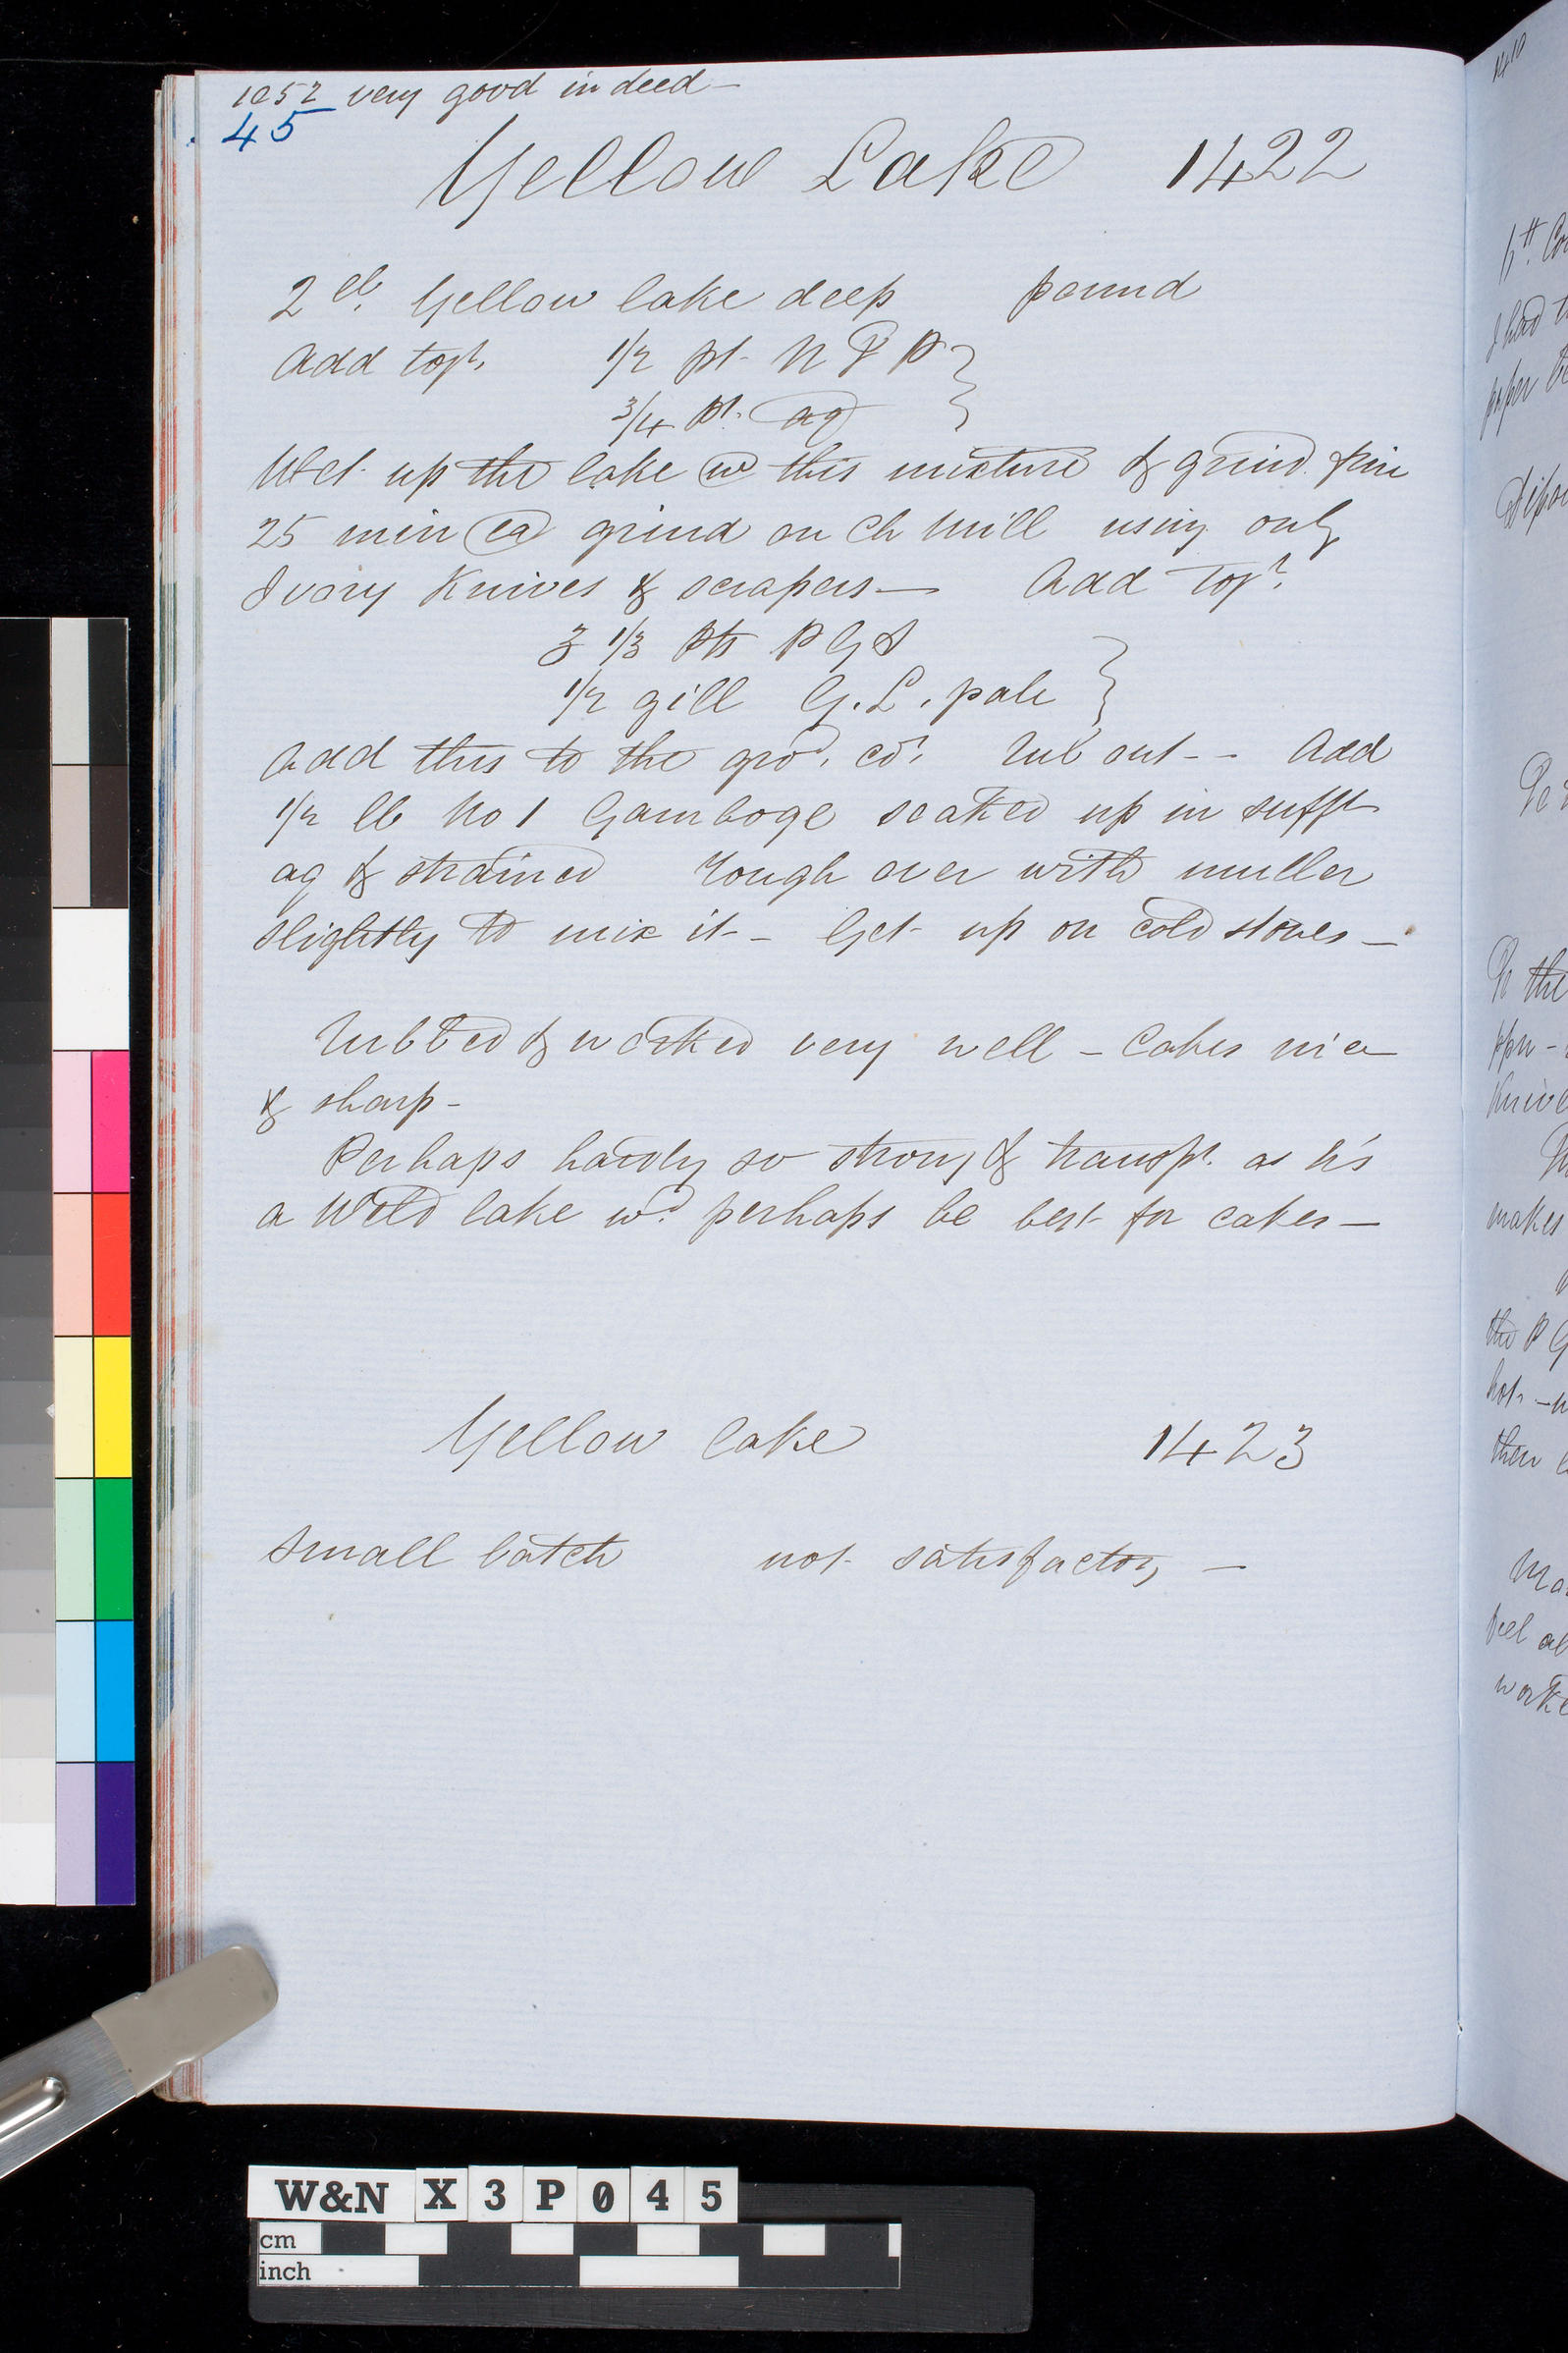 1852 very good indeed —
45
Yellow Lake 1422
2 lb. Yellow lake deep pound
Add togr. 1/2 pt. N P P }
3/4 pt. aq }
Wet up the lake w this mixture & grind fine
25 min ea grind on Ch Mill using only
Ivory Knives & scrapers — Add togr.
3 1/3 Pts P G S
1/2 gill G. L. pale }
Add this to the gro. co. Rub out - - Add
1/2 lb No 1 Gamboge soaked up in sufft
aq & strained rough over with muller
slightly to mix it - Get up on cold stones —
Rubbed & worked very well - Cakes nice
& sharp -
Perhaps hardly so strong & transpt. as K's
a Weld lake wd. perhaps be best for cakes —
Yellow lake 1423
Small batch not satisfactory —
W&N X 3 P 0 4 5
cm
inch
the
Knive
makes
then